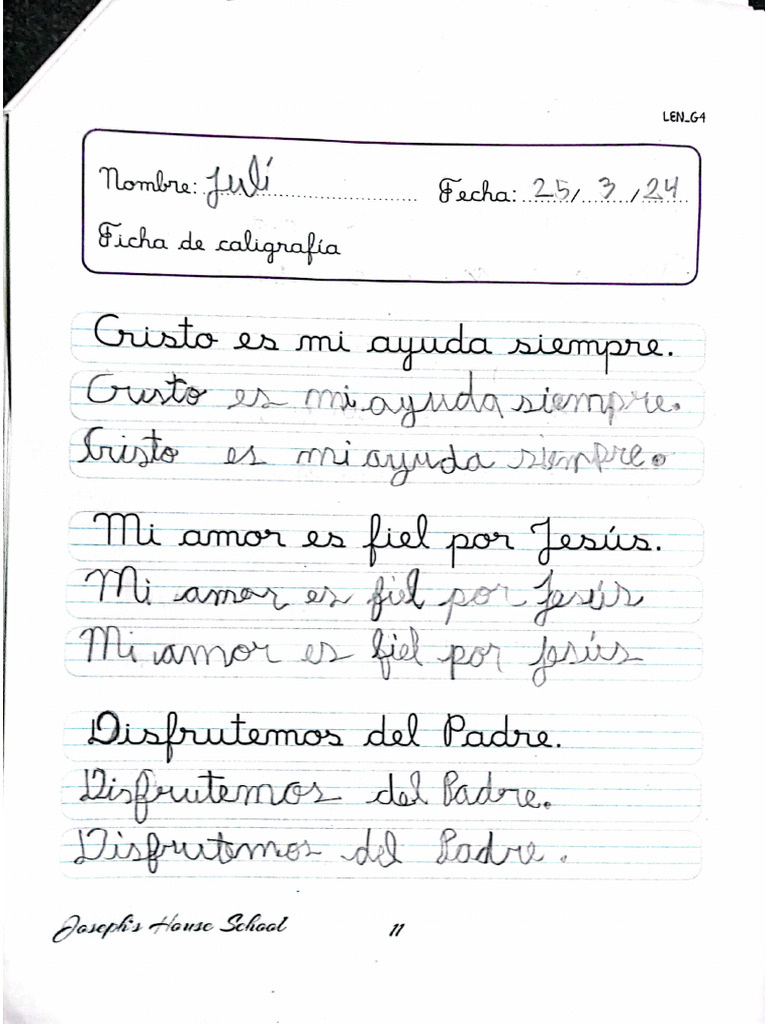 LEN_G4
Nombre: Juli Fecha: 25/3/24
Ficha de caligrafía
Cristo es mi ayuda siempre.
Cristo es mi ayuda siempre.
Cristo es mi ayuda siempre.
Mi amor es fiel por Jesús.
Mi amor es fiel por Jesús
Mi amor es fiel por Jesús
Disfrutemos del Padre.
Disfrutemos del Padre.
Disfrutemos del Padre.
Joseph's House School 11